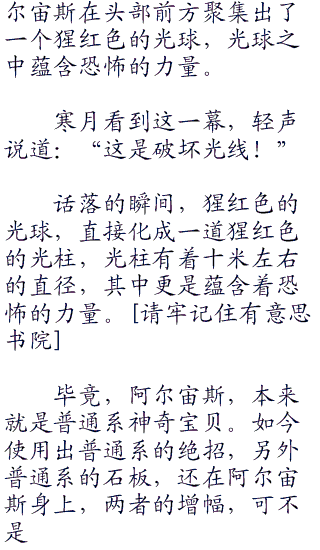 尔宙斯在头部前方聚集出了
一个猩红色的光球，光球之
中蕴含恐怖的力量。
寒月看到这一幕，轻声
说道：“这是破坏光线！”
话落的瞬间，猩红色的
光球，直接化成一道猩红色
的光柱，光柱有着十米左右
的直径，其中更是蕴含着恐
怖的力量。[请牢记住有意思
书院]
毕竟，阿尔宙斯，本来
就是普通系神奇宝贝。如今
使用出普通系的绝招，另外
普通系的石板，还在阿尔宙
斯身上，两者的增幅，可不
是